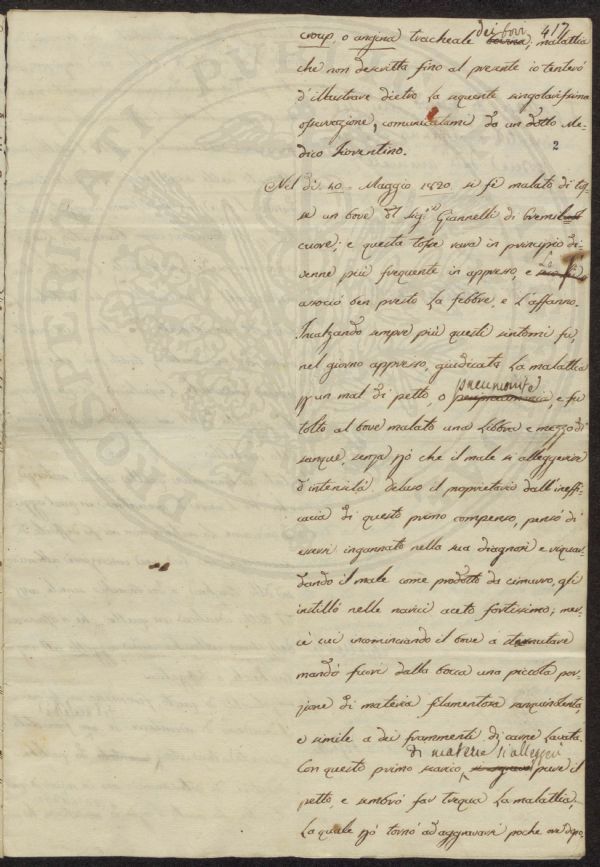 417
croup, o angina tracheale dei bovi, malattia
che non descritta fino al presente io tenterò
d'illustrare dietro la seguente singolarissima
osservazione, comunicatami da un dotto Me-
dico Fiorentino.
2
Nel dì 10 Maggio 1820 si fè malato di tos-
se un bove del Sig.r Giannelli di
cuore; e questa tosse rara in principio di-
venne più frequente in appresso, e le si
associò ben presto la febbre, e l'affanno.
Incalzando sempre più questi sintomi fu,
nel giorno appresso, giudicata la malattia
p un mal di petto, o pneumonite, e fu
tolto al bove malato una libbra e mezzo di
sangue, senza pò che il male si alleggerisse
d'intensità deluso il proprietario dall'ineffi-
cacia di questo primo compenso, pensò di
essersi ingannato nella sua diagnosi e riguar-
dando il male come prodotto da cimurro, gli
instillò nelle narici aceto fortissimo; mer-
cè cui incominciando il bove a starnutare
mandò fuori dalla bocca una piccola por-
zione di materia filamentosa sanguinolenta,
e simile a dei frammenti di carne lavata.
Con questo primo scarico di materie si alleggerì pure il
petto, e sembrò far tregua la malattia,
la quale pò tornò ad aggravarsi poche ore dopo,